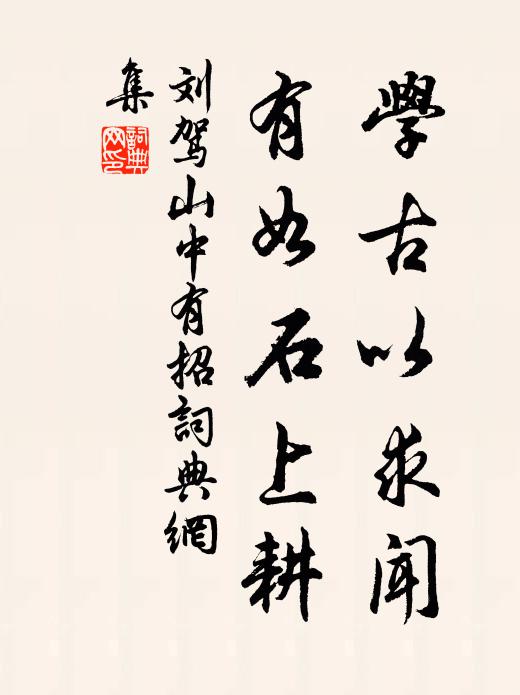 學古以求聞
有如石上耕
刘驾山中有招詞典網
集
詞典
网印